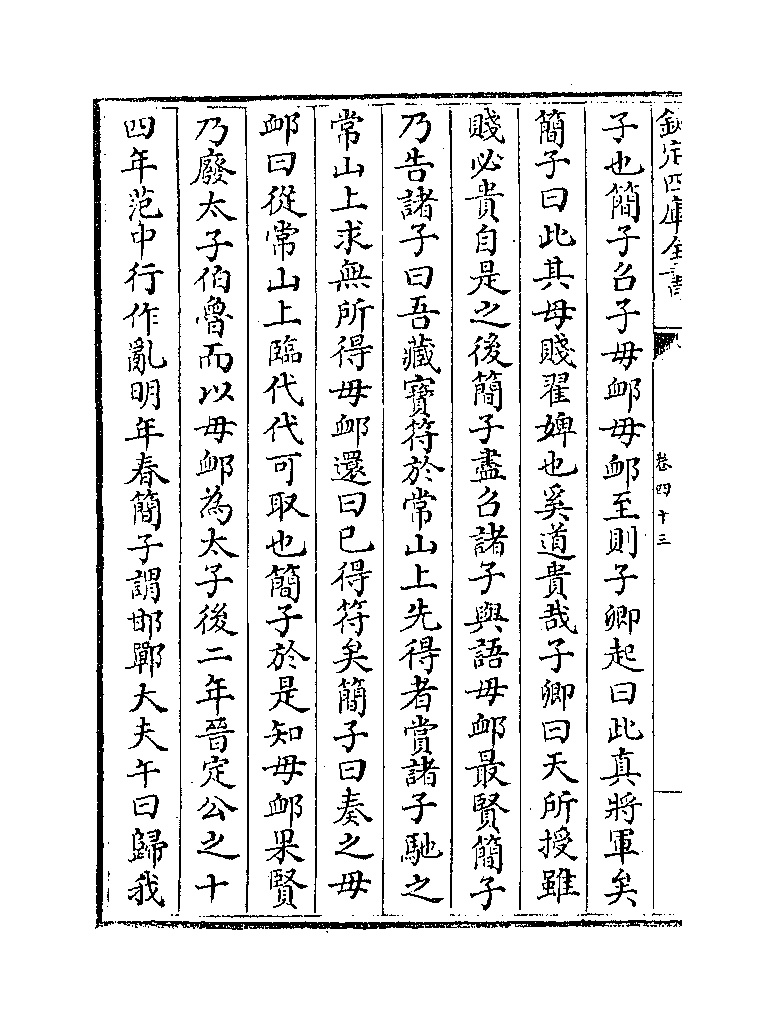 欽定四庫全書
卷四十三
子也簡子召子毋䘏毋䘏至則子卿起曰此真將軍矣
簡子曰此其母賤翟婢也奚道貴哉子卿曰天所授雖
賤必貴自是之後簡子盡召諸子與語毋䘏最賢簡子
乃告諸子曰吾藏寶符於常山上先得者賞諸子馳之
常山上求無所得毋䘏還曰已得符矣簡子曰奏之毋
䘏曰從常山上臨代代可取也簡子於是知毋䘏果賢
乃廢太子伯魯而以毋䘏為太子後二年晉定公之十
四年范中行作亂明年春簡子謂邯鄲大夫午曰歸我